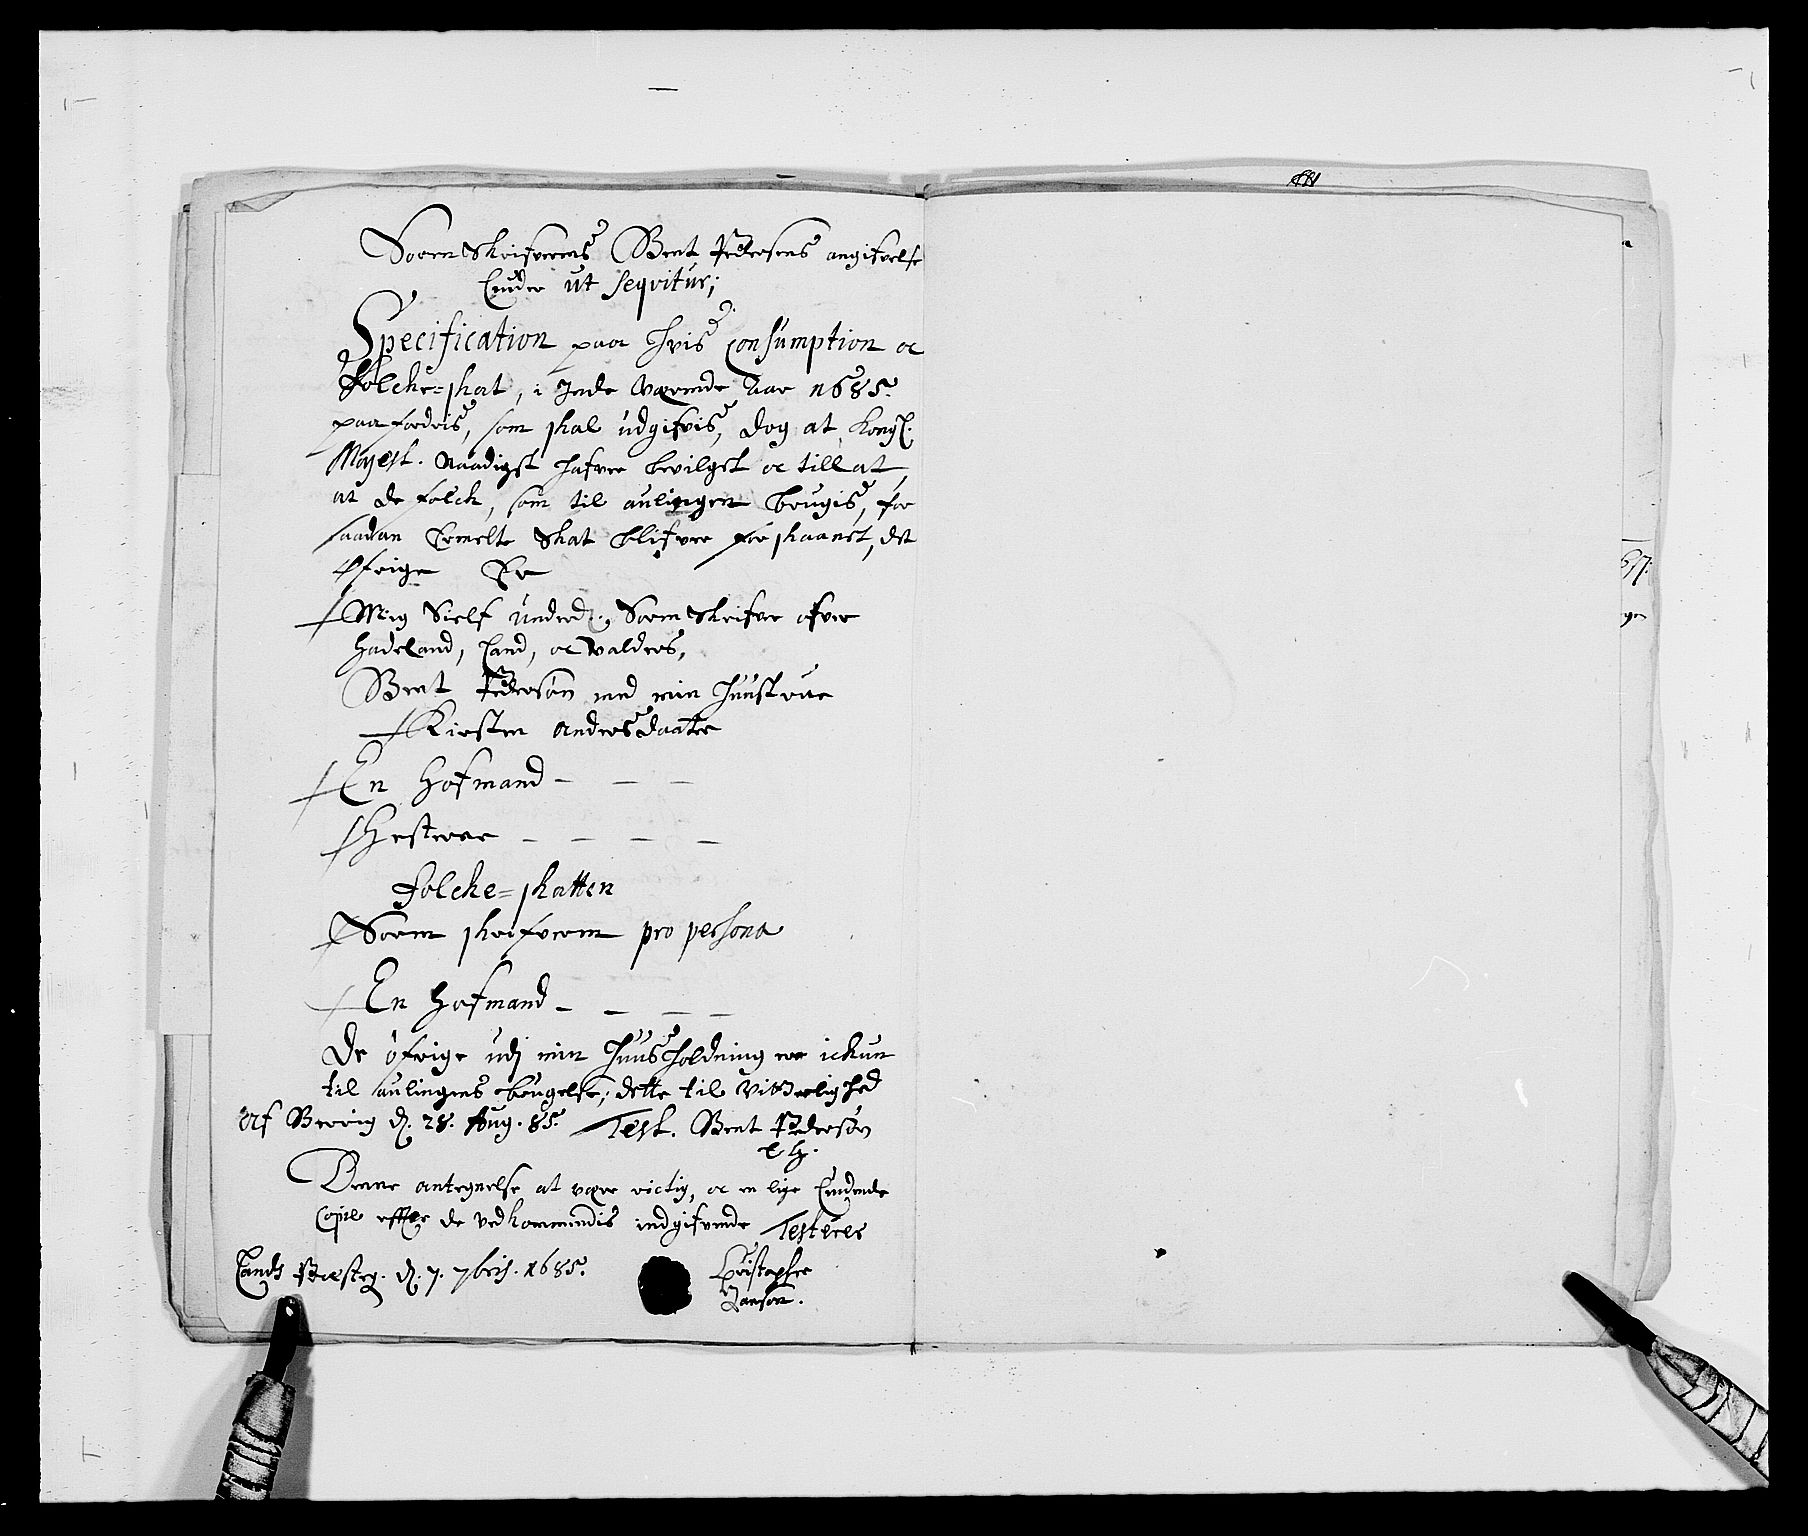 Sorenskrifverens Bent Pedersens angifvelse
Liuder ut seqvitur;
Specification paa hvis Consumption oc
Folche=skat, i Inde værende Aar 1685.
paa fordris, som skal udgifvis, dog at Kongl.
Mayest. Naadigst hafver bevilget oc tillat,
at de folck, som til aulingen brugis, for
saadan bemelte Skat blifver forskaanet, det
Øfrige Er
Mig Sielf Underd. Sorenskrifver ofver
Hadeland, Land, oc Valders,
Bent Pedersøn med min Huustrue
Kirsten Andersdaatter
En Hofmand - - -
Hesterne - - - -
Folche=skatten
Sorenskrifveren pro persona
En Hofmand - - - -
De øfrige udj min Huusholdning er ickun
til aulingens brugelse; dette til Vitterlighed
Af d. 28. Aug. 85. Test. Bent Pedersøn
E H.
Denne antegnelse at være rictig, oc en lige liudende
Copie effter de vedkommendis indgifvende Testerer
Lands Præsteg. d. 7. 7bris. 1685.
Christopher
Hansøn.